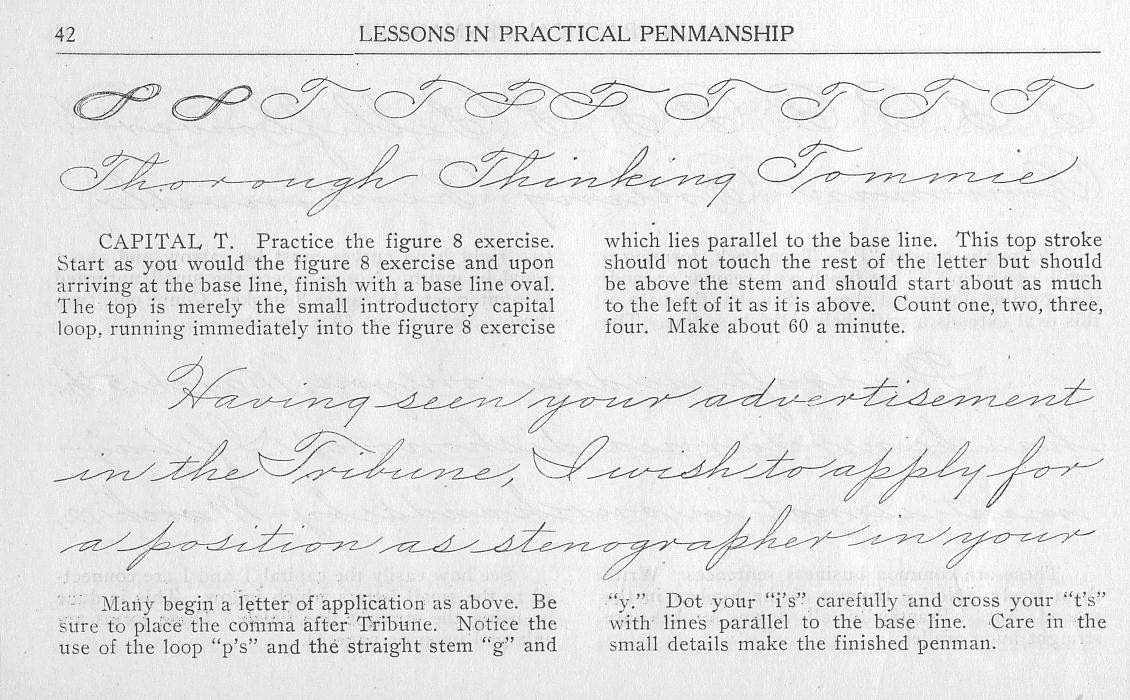 42 LESSONS IN PRACTICAL PENMANSHIP
T T T T T T T T
Thorough Thinking Tommie
CAPITAL T. Practice the figure 8 exercise.
Start as you would the figure 8 exercise and upon
arriving at the base line, finish with a base line oval.
The top is merely the small introductory capital
loop, running immediately into the figure 8 exercise
which lies parallel to the base line. This top stroke
should not touch the rest of the letter but should
be above the stem and should start about as much
to the left of it as it is above. Count one, two, three,
four. Make about 60 a minute.
Having seen your advertisement
in the Tribune, I wish to apply for
a position as stenographer in your
Many begin a letter of application as above. Be
sure to place the comma after Tribune. Notice the
use of the loop "p's" and the straight stem "g" and
"y." Dot your "i's" carefully and cross your "t's"
with lines parallel to the base line. Care in the
small details make the finished penman.